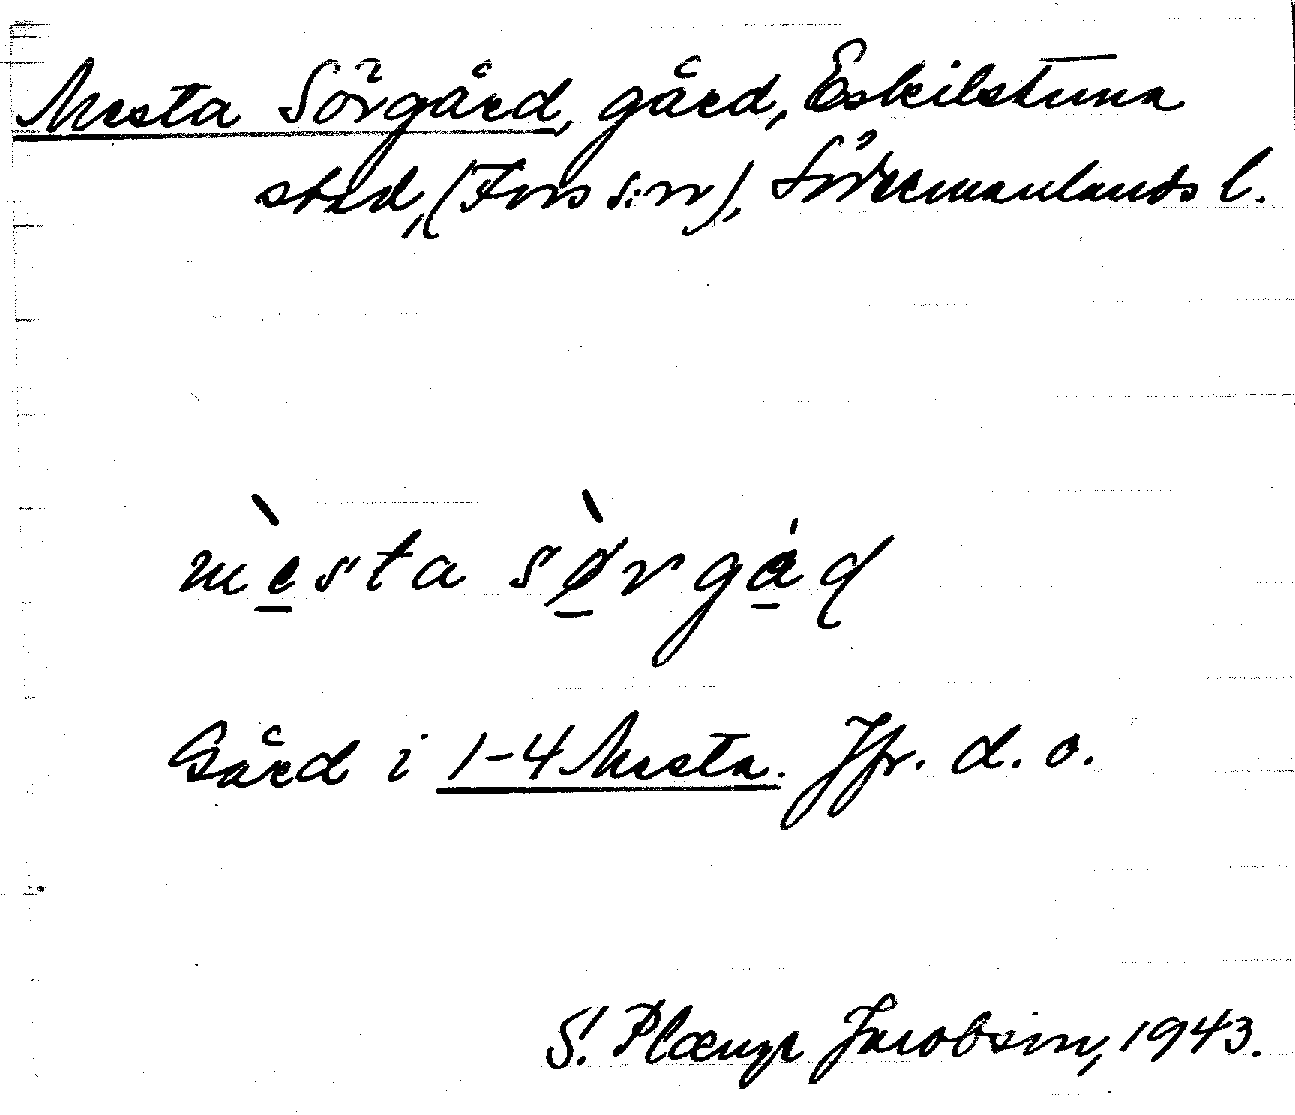 Mesta Sörgård, gård, Eskilstuna
stad, (Fors s:n), Södermanlands l.
mèsta sø̀rgȧd
Gård i 1-4 Mesta. Jfr. d. o.
S. Plænge Jacobson, 1943.